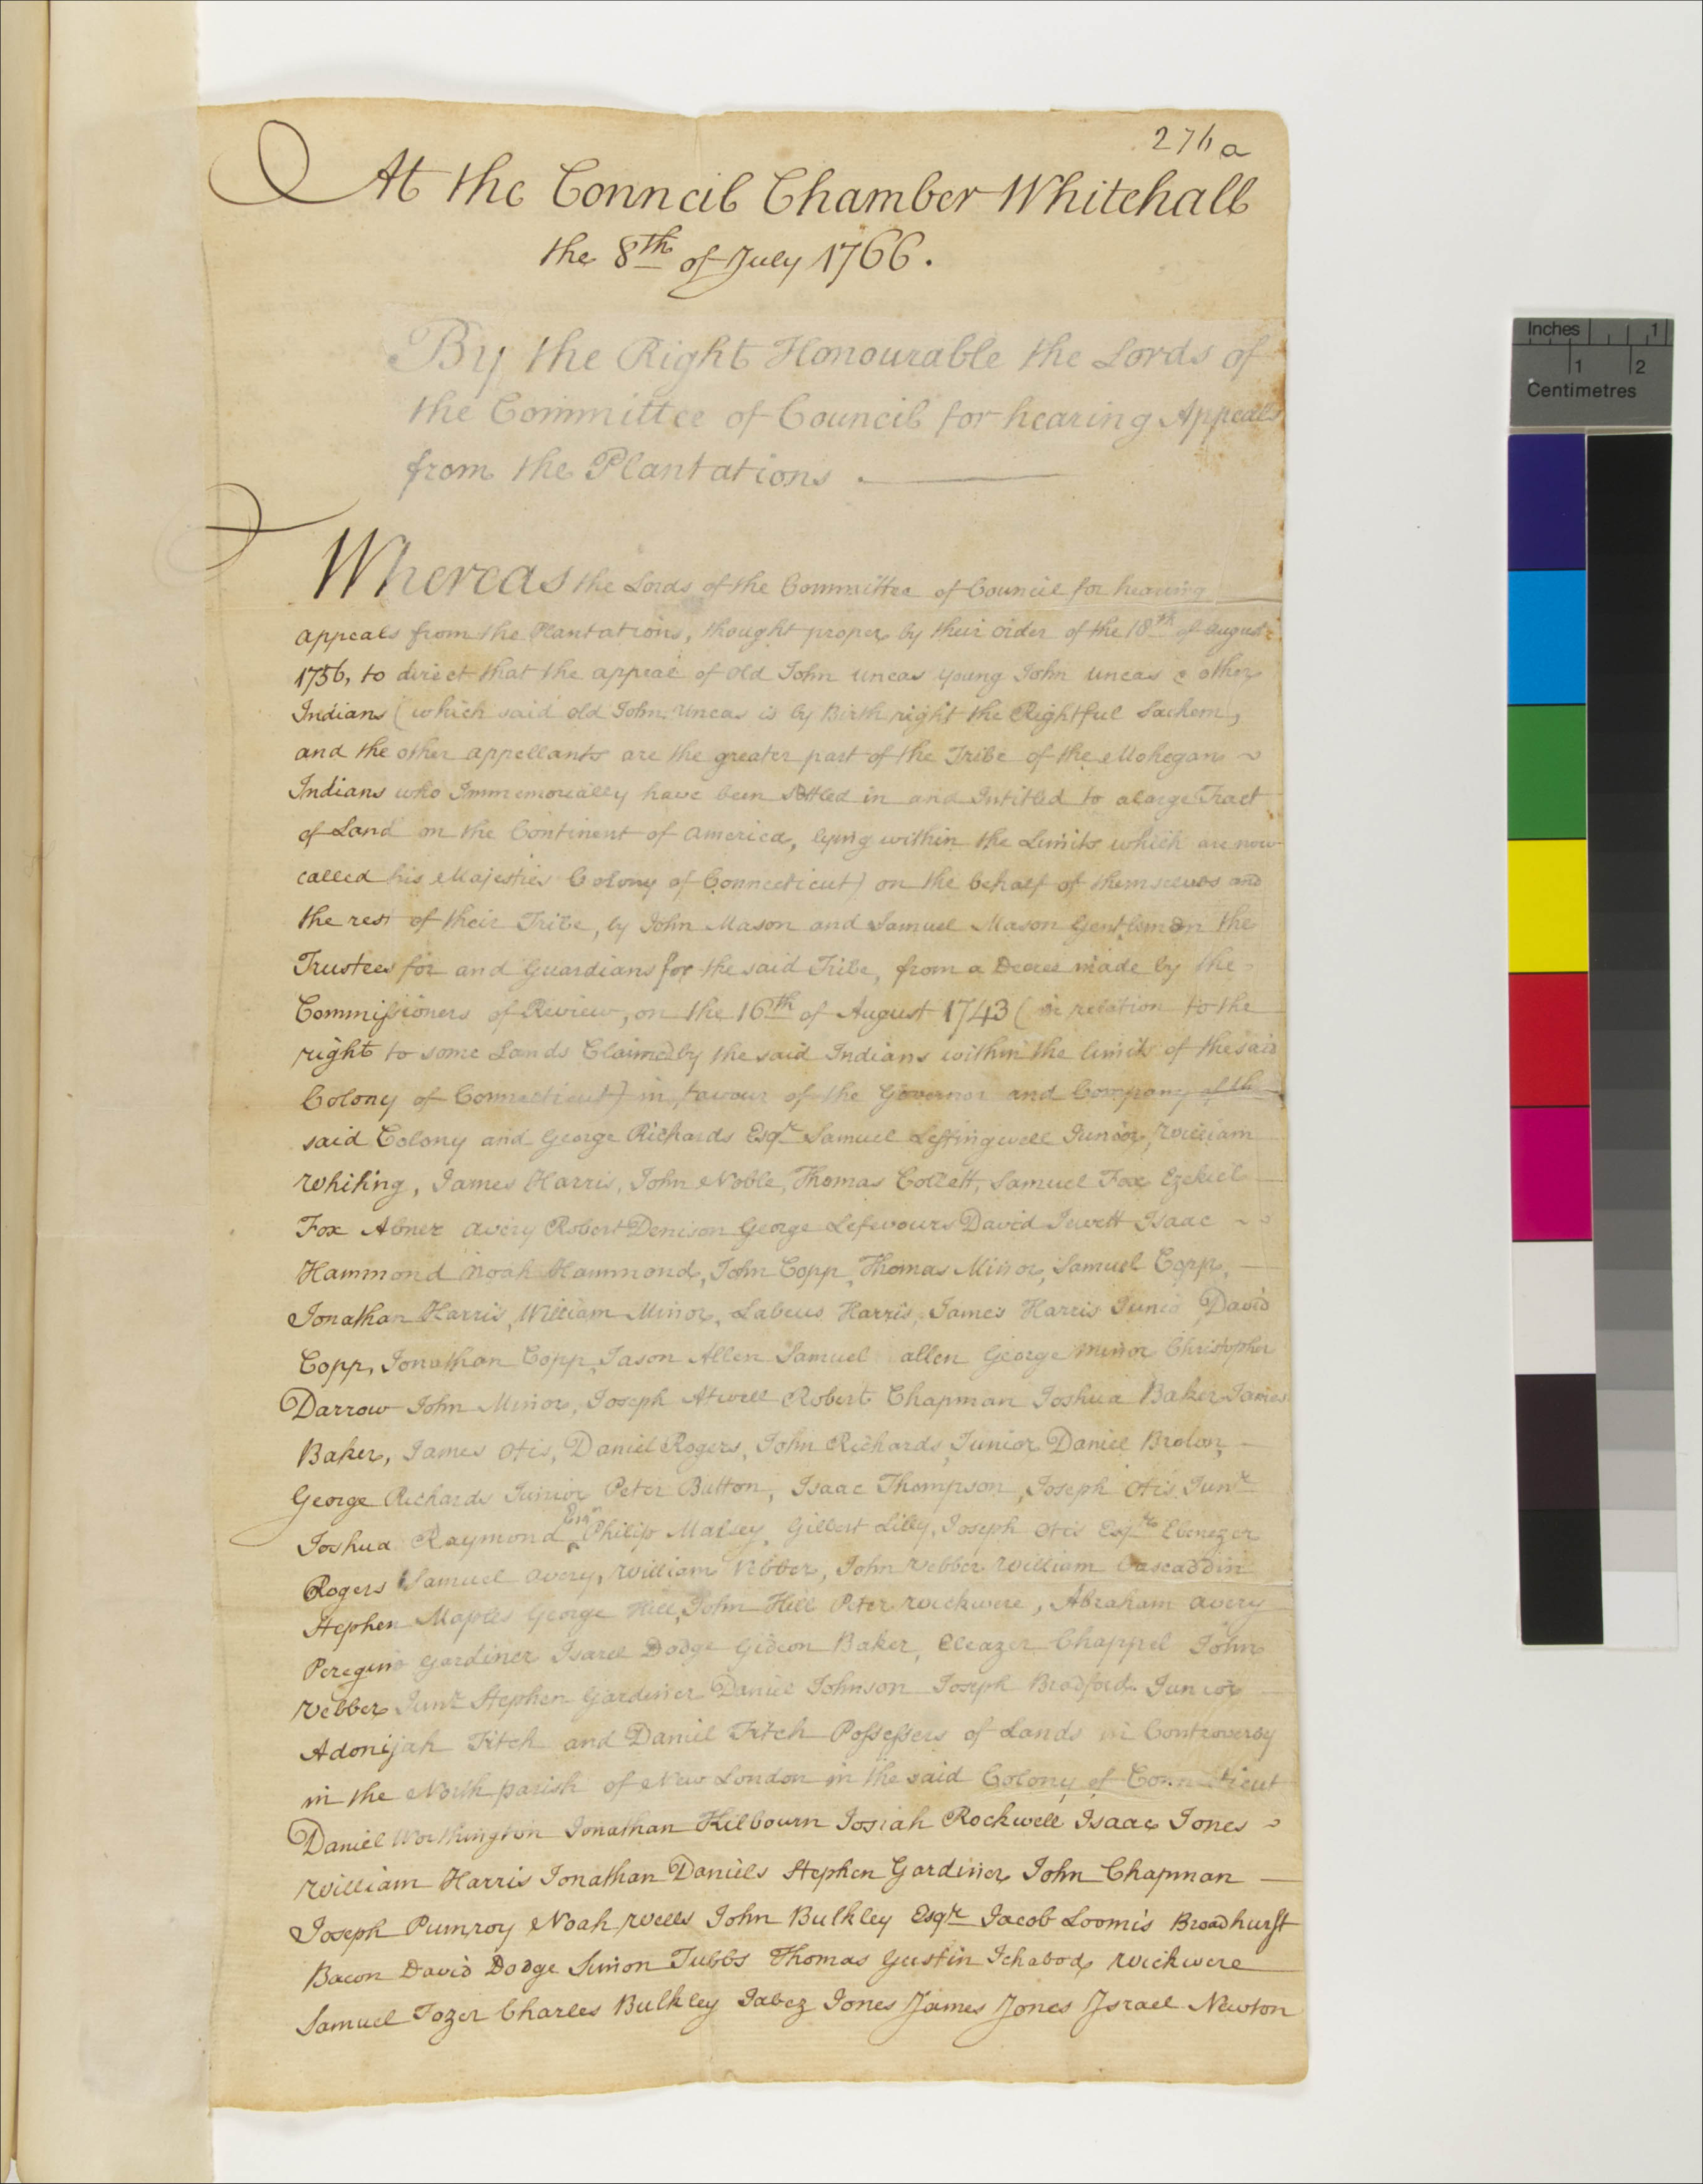 276a
At the Council Chamber Whitehall
the 8th of July 1766.
By the Right Honourable the Lords of
the Committee of Council for hearing Appeals
from the Plantations.
Whereas the Lords of the Committee of Council for hearing
appeals from the Plantations, thought proper by their order of the 18th of August
1756, to direct that the appeal of old John uncas young John uncas & other
Indians (which said old John Uncas is by Birth right the Rightful Sachem,
and the other appellants are the greater part of the Tribe of the Mohegan
Indians who Immemorially have been settled in and Intitled to a large Tract
of Land on the Continent of america, lying within the Limits which are now
called his Majesties Colony of Connecticut) on the behalf of themselves and
the rest of their Tribe, by John Mason and Samuel Mason Gentlemen the
Trustees for and Guardians for the said Tribe, from a Decree made by the
Commissioners of Review, on the 16th of August 1743 (in relation to the
right to some Lands Claimed by the said Indians within the limits of the said
Colony of Connecticut) in favour of the Governor and Company of the
said Colony and George Richards Esqr Samuel Leffingwell Junior, William
Whiting, James Harris, John Noble, Thomas Collett, Samuel Fox Ezekiel
Fox Abner avery Robert Denison George Lefevours David Jewett Isaac
Hammond Noah Hammond, John Copp, Thomas Minor, Samuel Copp,
Jonathan Harris, William Minor, Labeus Harris, James Harris Junio David
Copp, Jonathan Copp, Jason Allen Samuel allen George Minor Christopher
Darrow John Minor, Joseph Atwell Robert Chapman Joshua Baker James
Baker, James Otis, Daniel Rogers, John Richards, Junior Daniel
George Richards Junior Peter Button, Isaac Thompson, Joseph Otis Junr
Joshua Raymond Esqr Philip Gilbert Lilly, Joseph Otis Esqr Ebenezer
Rogers Samuel avery, William Webber, John Webber William
Stephen Maples George Hill, John Hill Peter Wickwere, Abraham avery
Gardiner Isarel Dodge Gideon Baker, Eleazer Chappel John
Webber Junr Stephen Gardiner Daniel Johnson Joseph Bradford Junior
Adonijah Fitch and Daniel Fitch Possessers of Lands in Controversy
in the North parish of New London in the said Colony of Connecticut
Daniel Worthington Jonathan Kilbourn Josiah Rockwell Isaac Jones
William Harris Jonathan Daniels Stephen Gardiner John Chapman
Joseph Pumroy Noah Wells John Bulkley Esqr Jacob Loomis Broadhurst
Bacon David Dodge Simon Tubbs Thomas Gustin Ichabod Wickwere
Samuel Tozer Charles Bulkley Jabez Jones James Jones Israel Newton
Inches 1
1 2
Centimetres